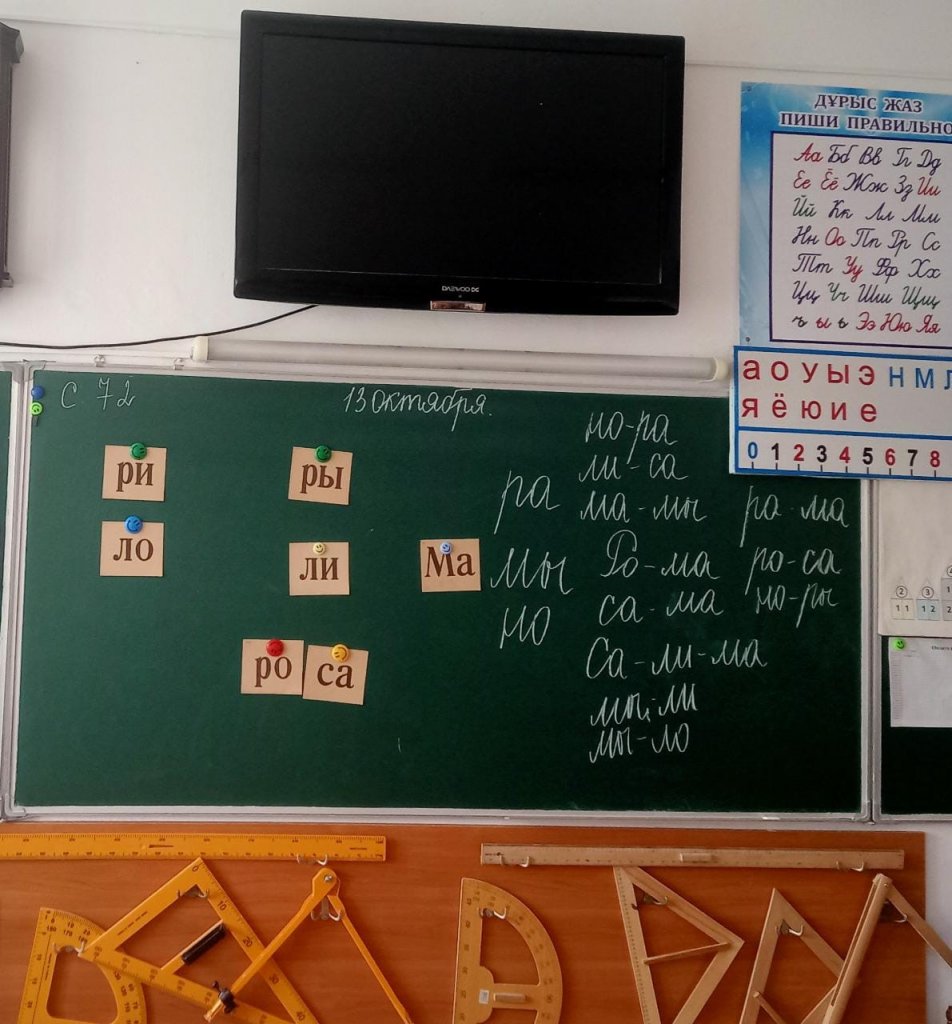 DAEWOO DG
ДҰРЫС ЖАЗ
ПИШИ ПРАВИЛЬНО
Аа Бб Вв Гг Дд
Ее Ёё Жж Зз Ии
Йй Кк Лл Мм
Нн Оо Пп Рр Сс
Тт Уу Фф Хх
Цц Чч Шш Щщ
ъ ы ь Ээ Юю Яя
а о у ы э н м
я ё ю и е
0 1 2 3 4 5 6 7 8
с 72
13 октября.
ри ры
ло ли Ма
ро са
ра
мы
но
но-ра
ли-са
ма-мы
Ро-ма
са-ма
Са-ли-ма
мы-ли
мы-ло
ра-ма
ро-са
но-ры